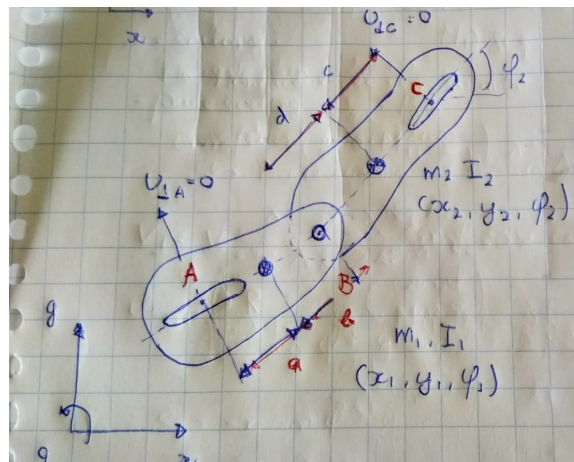 x
υ⊥C = 0
c
d
C
φ₂
m₂ I₂
(x₂, y₂, φ₂)
υ⊥A = 0
A
B
b
a
m₁, I₁
(x₁, y₁, φ₁)
y